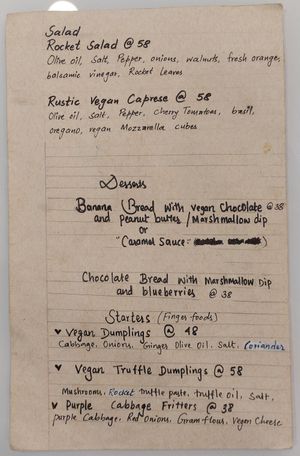 Salad
Rocket Salad @ 58
Olive oil, Salt, Pepper, onions, walnuts, fresh orange,
balsamic vinegar, Rocket Leaves
Rustic Vegan Caprese @ 58
Olive oil, Salt, Pepper, cherry Tomatoes, basil,
oregano, vegan Mozzarella cubes
Desserts
Banana (Bread with vegan Chocolate @ 38
and peanut butter / Marshmallow dip
or
"Caramel Sauce"
)
Chocolate Bread with Marshmallow Dip
and blueberries @ 38
Starters (Finger foods)
Vegan Dumplings @ 48
Cabbage, Onions, Ginger Olive Oil, Salt, Coriander
Vegan Truffle Dumplings @ 58
Mushrooms, Rocket truffle paste, truffle oil, Salt,
Purple Cabbage Fritters @ 38
purple Cabbage, Red Onions, Gram flour, Vegan Cheese